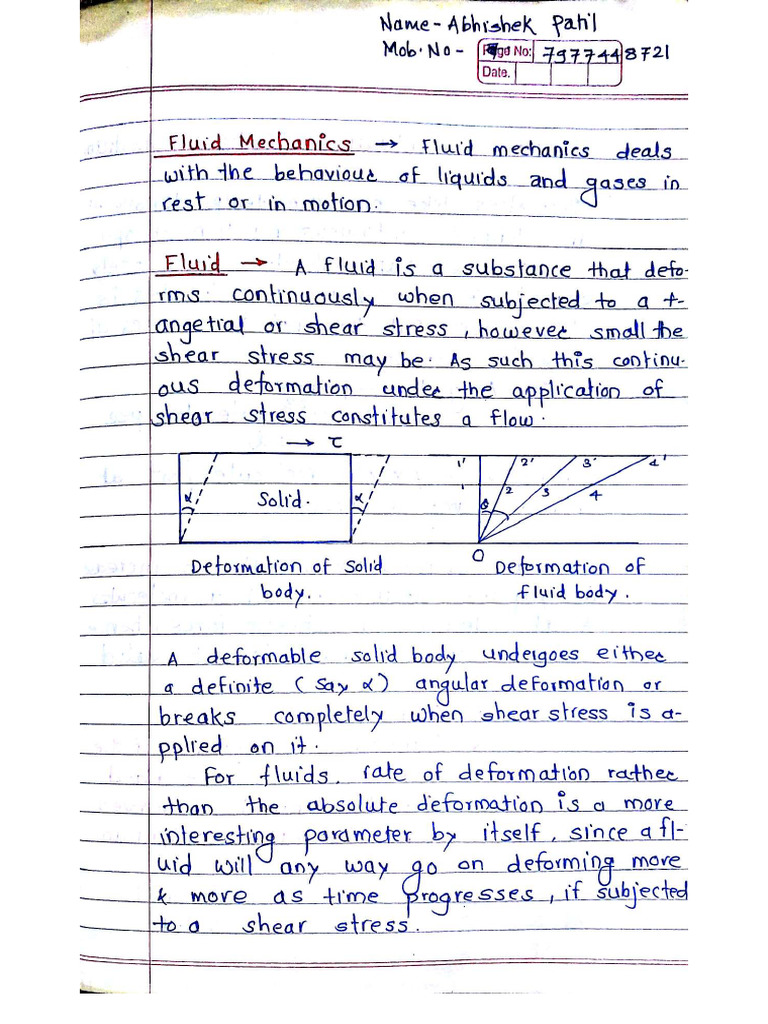 Name - Abhishek Patil
Mob. No - 7977448721
Page No:
Date.
Fluid Mechanics → Fluid mechanics deals
with the behaviour of liquids and gases in
rest or in motion.
Fluid → A fluid is a substance that defo-
rms continuously when subjected to a t-
angetial or shear stress, however small the
shear stress may be. As such this continu-
ous deformation under the application of
shear stress constitutes a flow.
→ τ
1' 2' 3' 4'
α Solid. α
2 3 4
θ
O
Deformation of solid
body.
Deformation of
fluid body.
A deformable solid body undergoes either
a definite (say α) angular deformation or
breaks completely when shear stress is a-
pplied on it.
For fluids, rate of deformation rather
than the absolute deformation is a more
interesting parameter by itself, since a fl-
uid will any way go on deforming more
& more as time progresses, if subjected
to a shear stress.